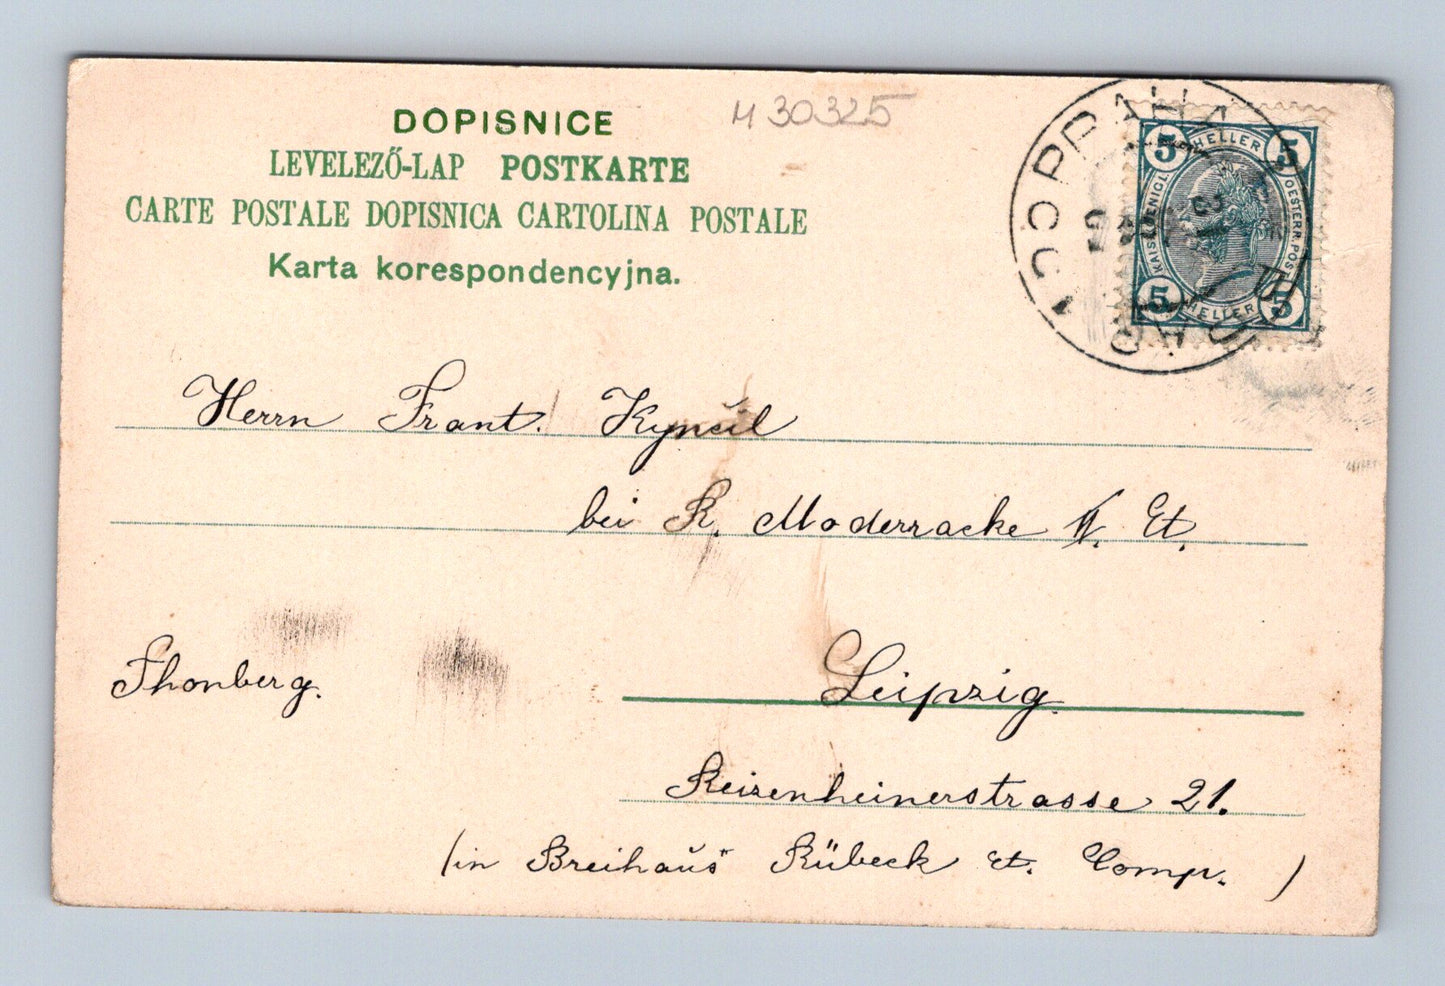 DOPISNICE
LEVELEZŐ-LAP POSTKARTE
CARTE POSTALE DOPISNICA CARTOLINA POSTALE
Karta korespondencyjna.
30325
5 HELLER 5
KAISERKÖNIGL.
OESTERR. POST
5 HELLER 5
Herrn Frant. Kynčil
bei R. Moderracke II. Et.
Thonberg.
Leipzig.
Reizenheinerstrasse 21.
(in Breihaŭs Rübeck et. Comp. )